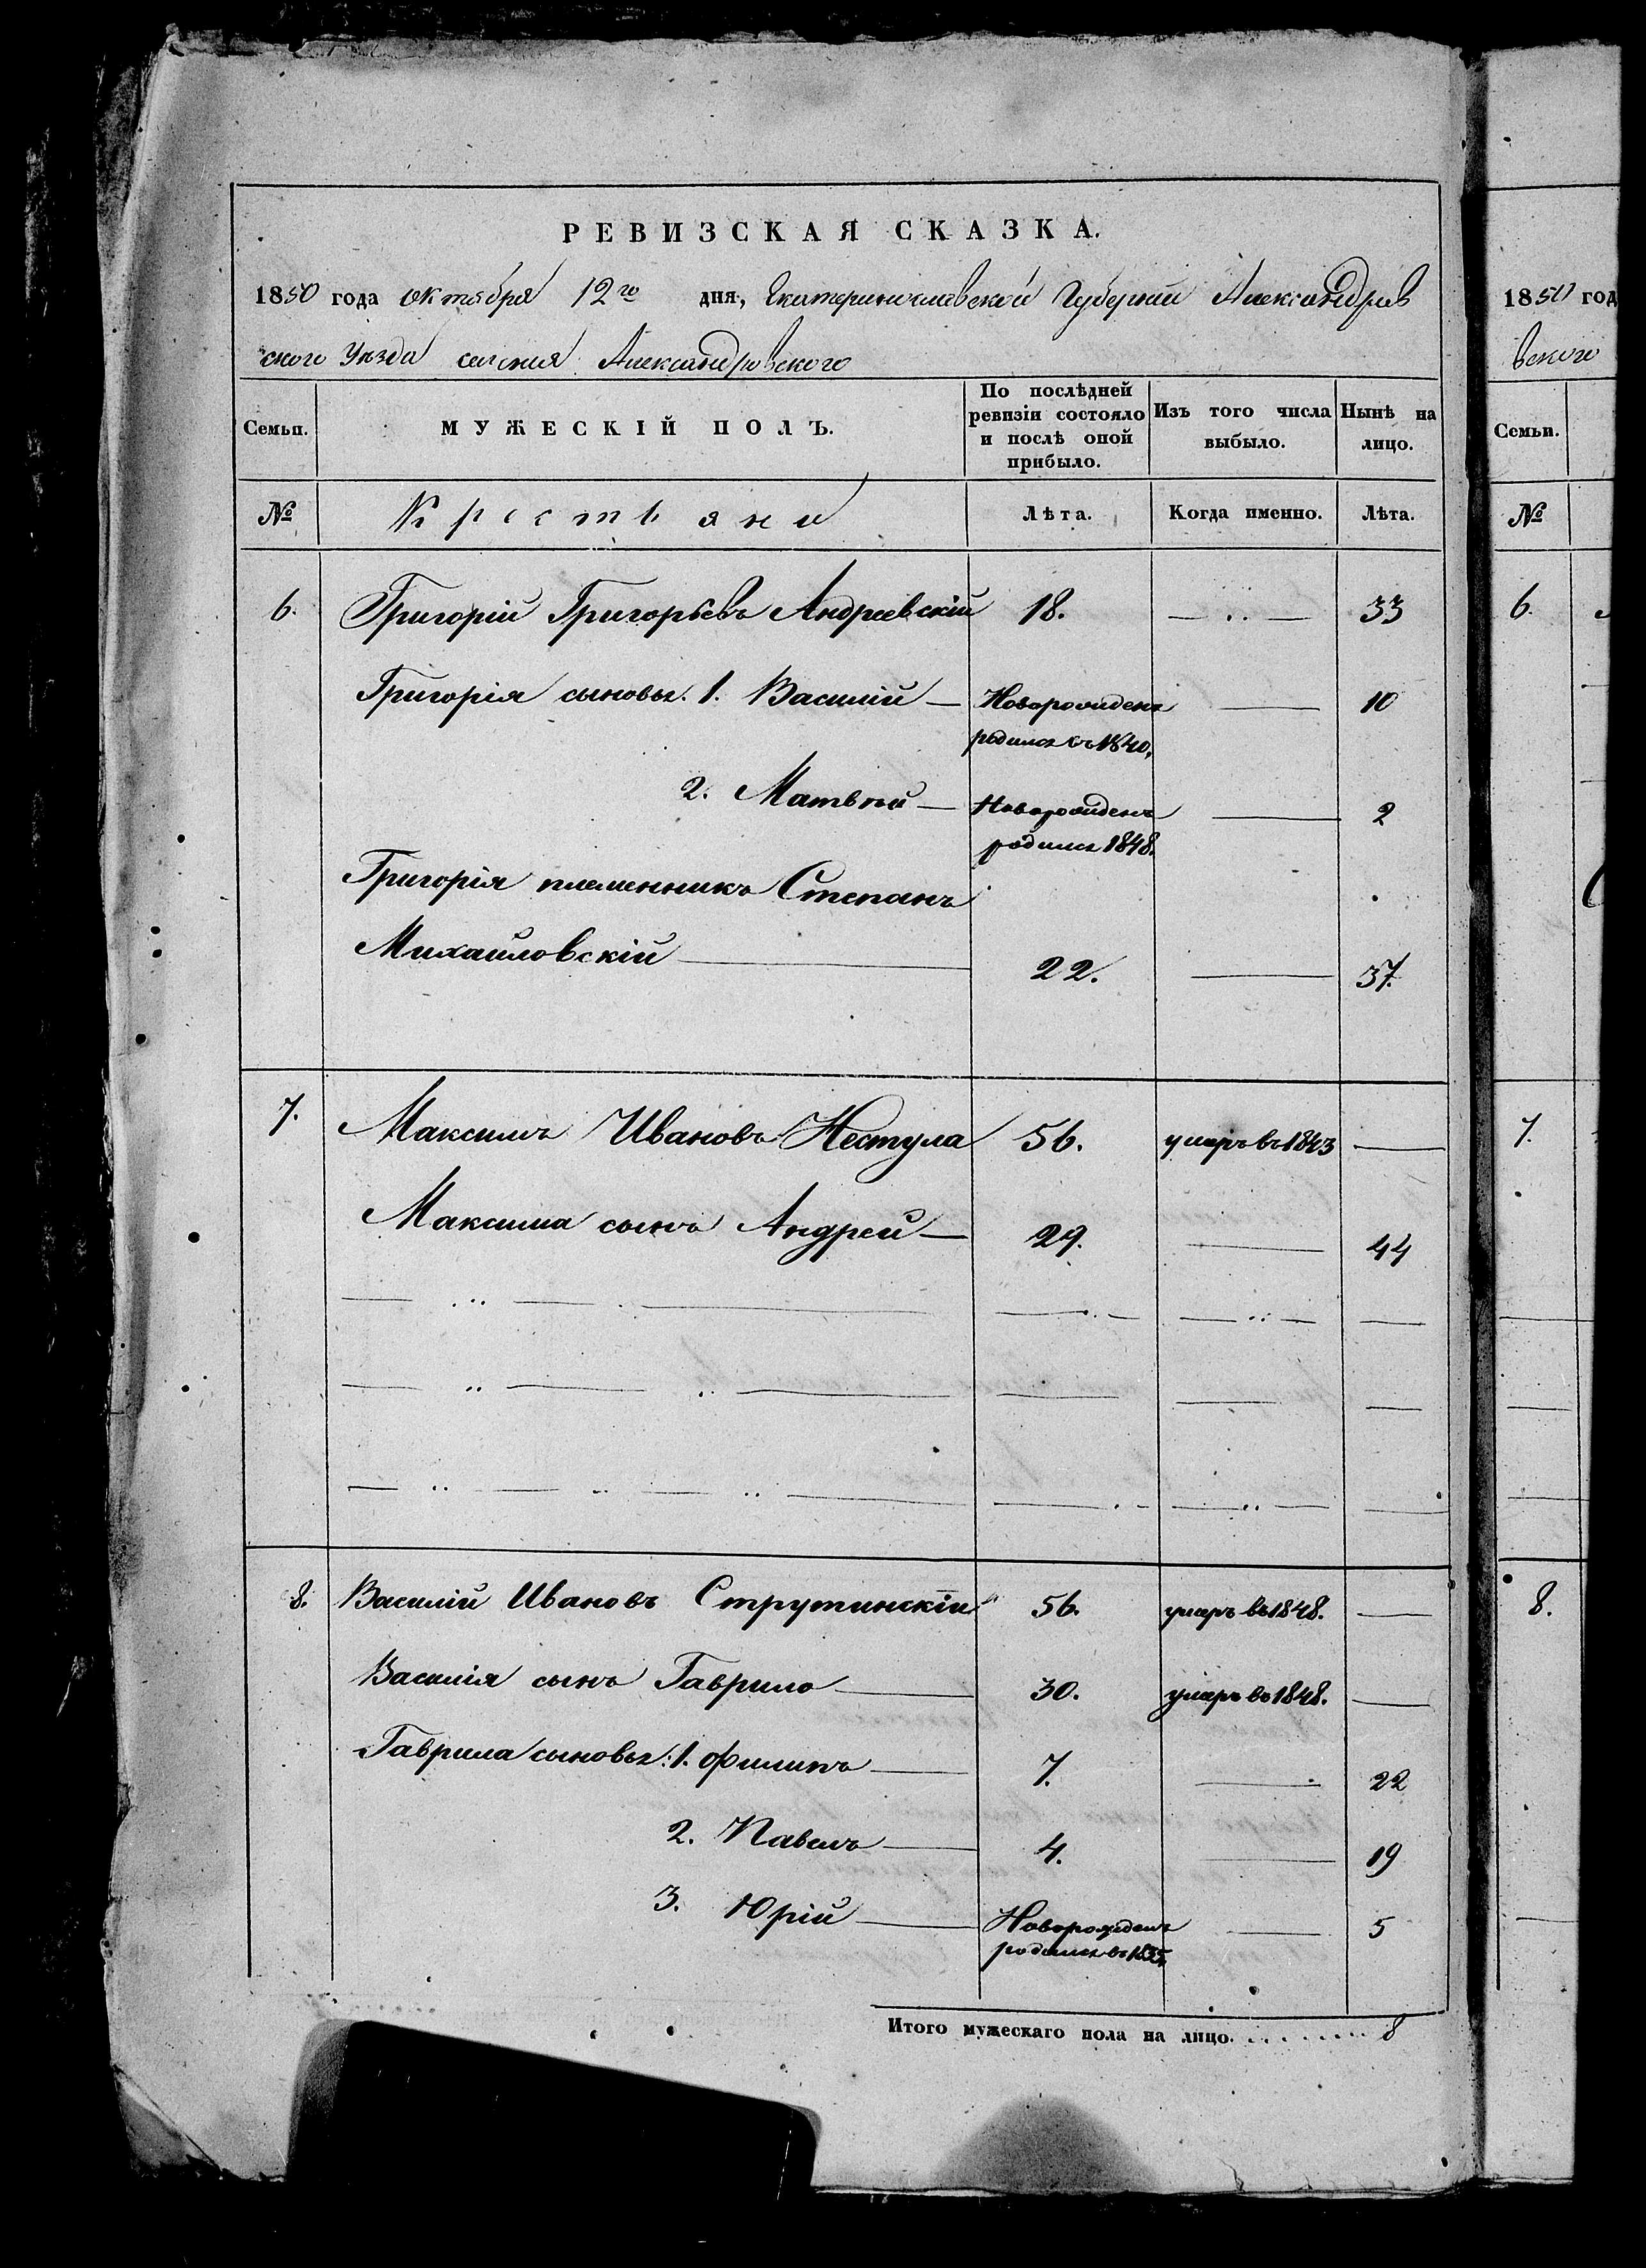 РЕВИЗСКАЯ СКАЗКА.
1850 года октября 12го дня, Екатеринославской Губерніи Александров
ского Уѣзда селенія Александровского
Семьи. МУЖЕСКІЙ ПОЛЪ. По послѣдней ревизіи состояло и послѣ оной прибыло. Изъ того числа выбыло. Нынѣ на лицо.
№ Крестьяне Лѣта. Когда именно. Лѣта.
6. Григорій Григорьевъ Андреевскій 18. 33
Григорія сыновья: 1. Василій — Новорожденъ 10
родился въ 1840.
2. Матвѣй — Новорожденъ 2
родился 1848.
Григорія племенникъ Степанъ
Михайловскій 22. 37.
7. Максимъ Ивановъ Нестула 56. умеръ въ 1843 —
Максима сынъ Андрей — 29. — 44
8. Василій Ивановъ Струтинскій 56. умеръ въ 1848. —
Василія сынъ Гаврило — 30. умеръ въ 1848. —
Гаврила сыновья: 1. Филипъ — 7. — 22
2. Павелъ — 4. — 19
3. Юрій — Новорожденъ — 5
родился въ
Итого мужескаго пола на лицо. . . . . . . . . 8
1850 год
вского
Семьи.
№
6.
7.
8.